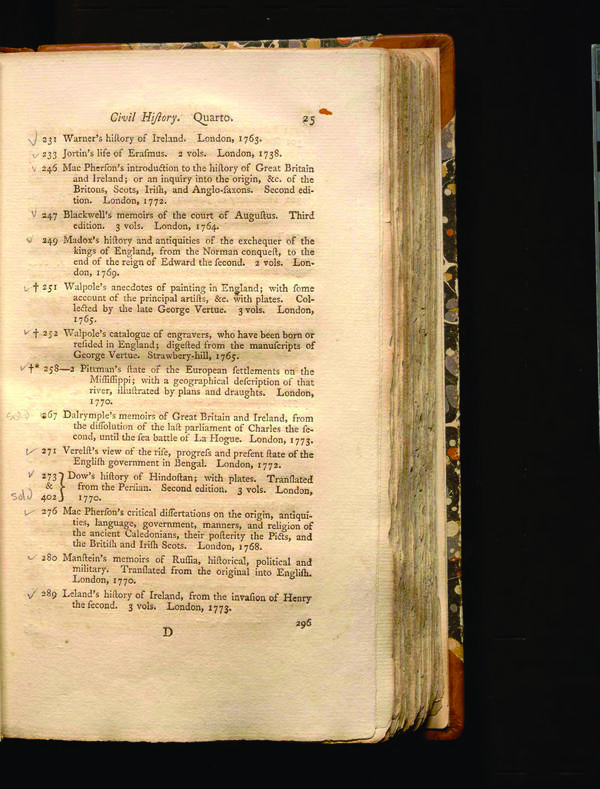 Civil Hiſtory. Quarto. 25
231 Warner's hiſtory of Ireland. London, 1763.
233 Jortin's life of Eraſmus. 2 vols. London, 1738.
246 Mac Pherſon's introduction to the hiſtory of Great Britain
and Ireland; or an inquiry into the origin, &c. of the
Britons, Scots, Iriſh, and Anglo-ſaxons. Second edi-
tion. London, 1772.
247 Blackwell's memoirs of the court of Auguſtus. Third
edition. 3 vols. London, 1764.
249 Madox's hiſtory and antiquities of the exchequer of the
kings of England, from the Norman conqueſt, to the
end of the reign of Edward the ſecond. 2 vols. Lon-
don, 1769.
† 251 Walpole's anecdotes of painting in England; with ſome
account of the principal artiſts, &c. with plates. Col-
lected by the late George Vertue. 3 vols. London,
1765.
† 252 Walpole's catalogue of engravers, who have been born or
reſided in England; digeſted from the manuſcripts of
George Vertue. Strawbery-hill, 1765.
†* 258—2 Pittman's ſtate of the European ſettlements on the
Miſſiſſippi; with a geographical deſcription of that
river, illuſtrated by plans and draughts. London,
1770.
sold 267 Dalrymple's memoirs of Great Britain and Ireland, from
the diſſolution of the laſt parliament of Charles the ſe-
cond, until the ſea battle of La Hogue. London, 1773.
271 Verelſt's view of the riſe, progreſs and preſent ſtate of the
Engliſh government in Bengal. London, 1772.
273 } Dow's hiſtory of Hindoſtan; with plates. Tranſlated
& } from the Perſian. Second edition. 3 vols. London,
sold 402 } 1770.
276 Mac Pherſon's critical diſſertations on the origin, antiqui-
ties, language, government, manners, and religion of
the ancient Caledonians, their poſterity the Picts, and
the Britiſh and Iriſh Scots. London, 1768.
280 Manſtein's memoirs of Ruſſia, hiſtorical, political and
military. Tranſlated from the original into Engliſh.
London, 1770.
289 Leland's hiſtory of Ireland, from the invaſion of Henry
the ſecond. 3 vols. London, 1773.
D 296